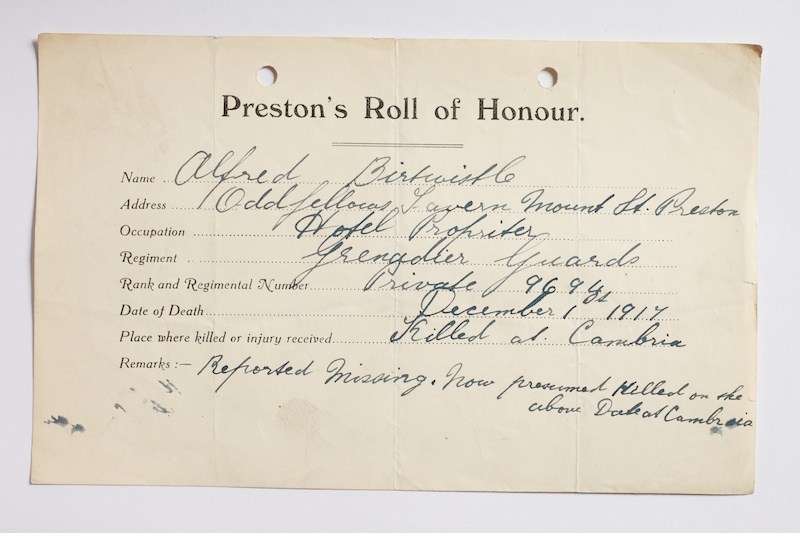 Preston's Roll of Honour.
Name Alfred Birtwistle
Address Oddfellows Tavern Mount St. Preston
Occupation Hotel Propriter
Regiment Grenadier Guards
Rank and Regimental Number Private 9694
Date of Death December 1st 1917
Place where killed or injury received Killed at Cambria
Remarks:— Reported Missing. Now presumed Killed on the
above Date at Cambria